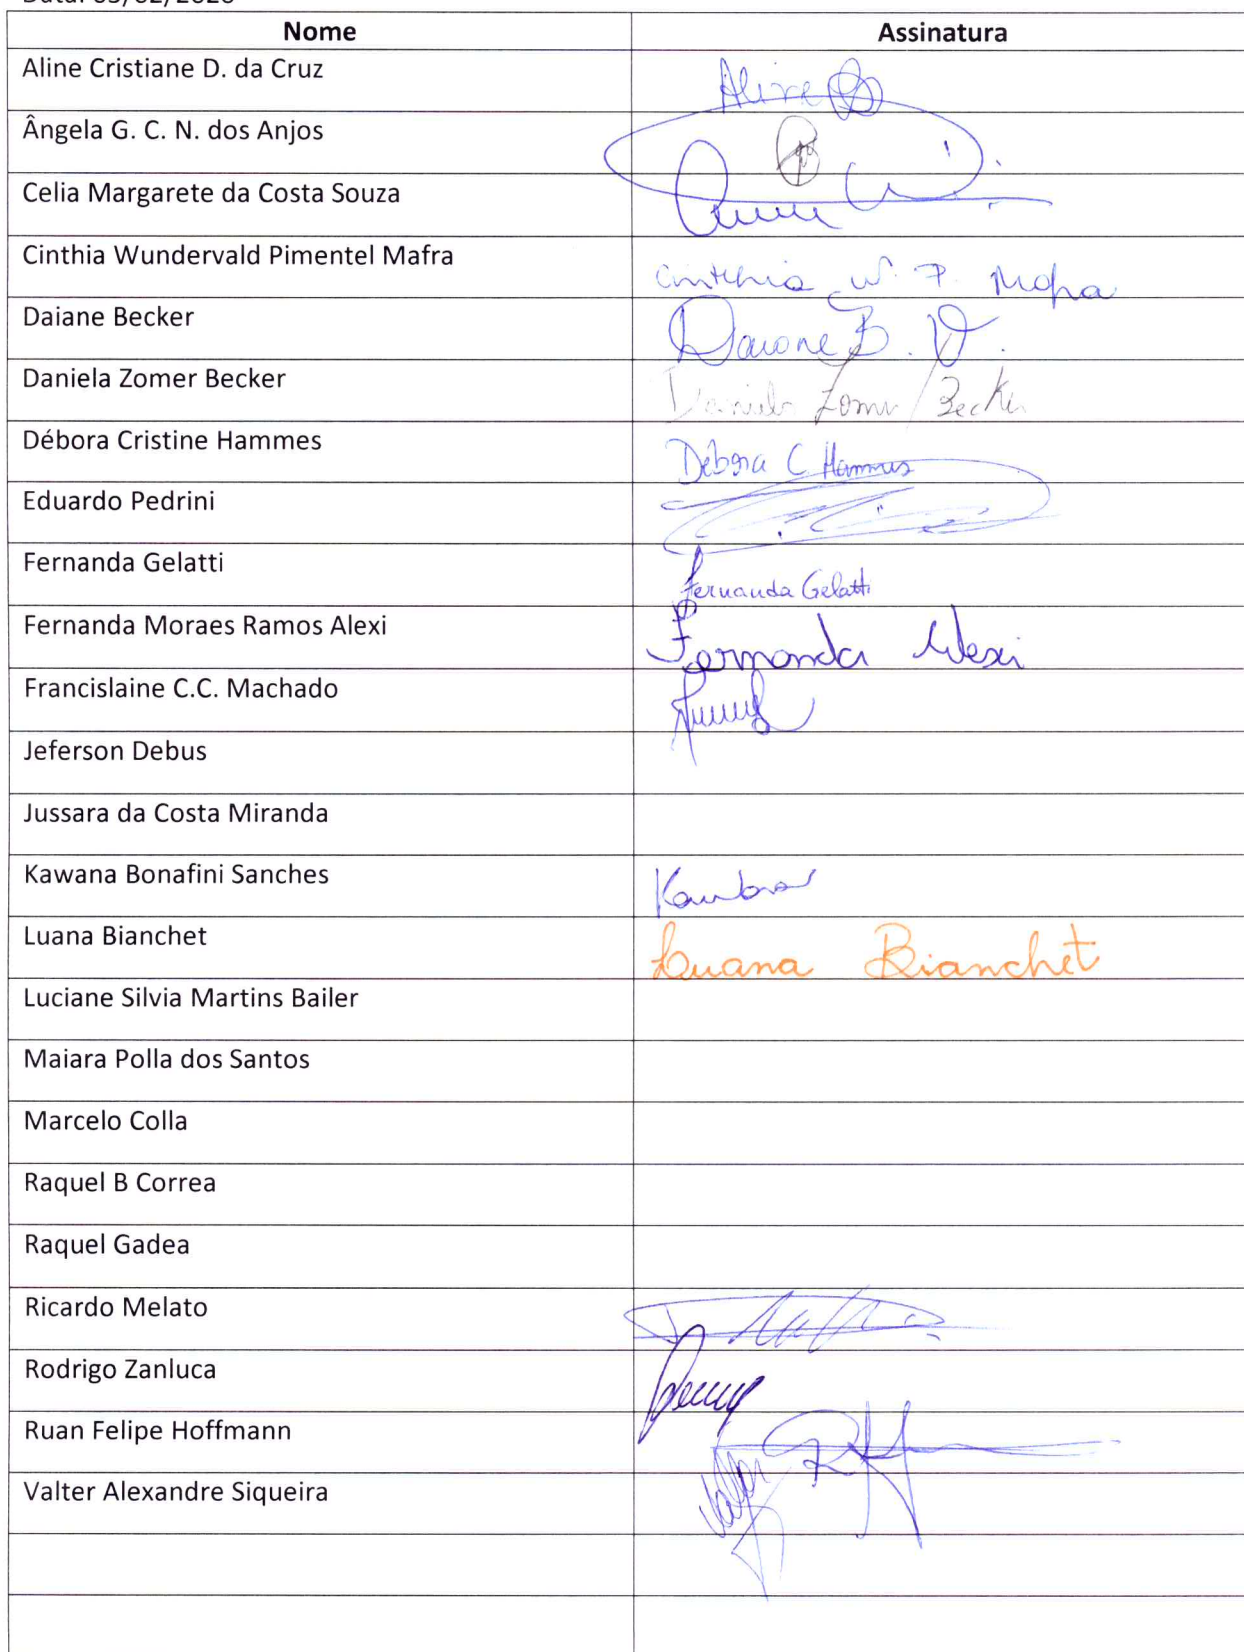 Nome Assinatura
Aline Cristiane D. da Cruz Aline
Ângela G. C. N. dos Anjos
Celia Margarete da Costa Souza
Cinthia Wundervald Pimentel Mafra Cinthia W. P. Mafra
Daiane Becker Daiane B.
Daniela Zomer Becker Daniela Zomer Becker
Débora Cristine Hammes Débora C Hammes
Eduardo Pedrini
Fernanda Gelatti Fernanda Gelatti
Fernanda Moraes Ramos Alexi Fernanda Alexi
Francislaine C.C. Machado
Jeferson Debus
Jussara da Costa Miranda
Kawana Bonafini Sanches
Luana Bianchet Luana Bianchet
Luciane Silvia Martins Bailer
Maiara Polla dos Santos
Marcelo Colla
Raquel B Correa
Raquel Gadea
Ricardo Melato
Rodrigo Zanluca
Ruan Felipe Hoffmann
Valter Alexandre Siqueira